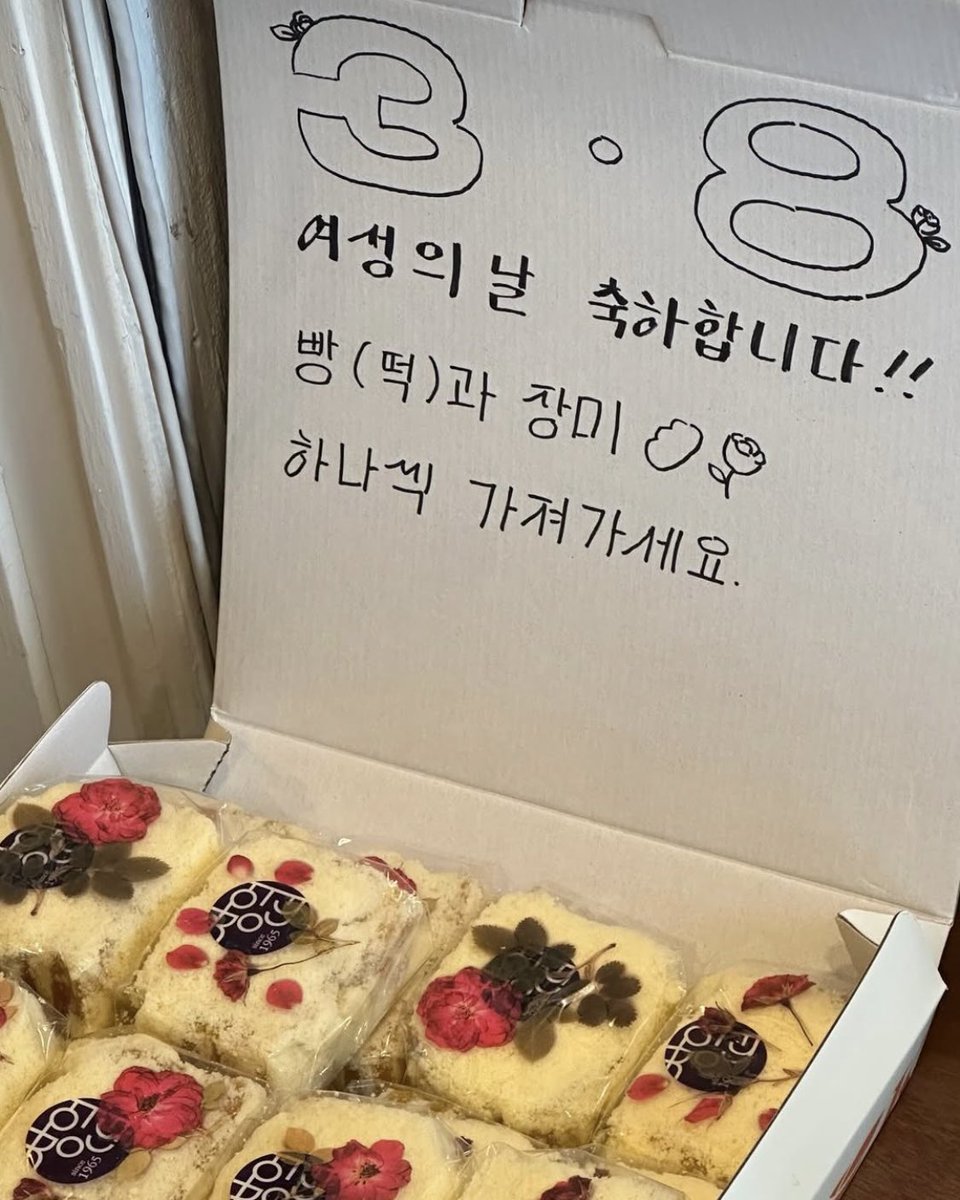 3 · 8
여성의 날 축하합니다!!
빵(떡)과 장미
하나씩 가져가세요.
since
1965
since
1965